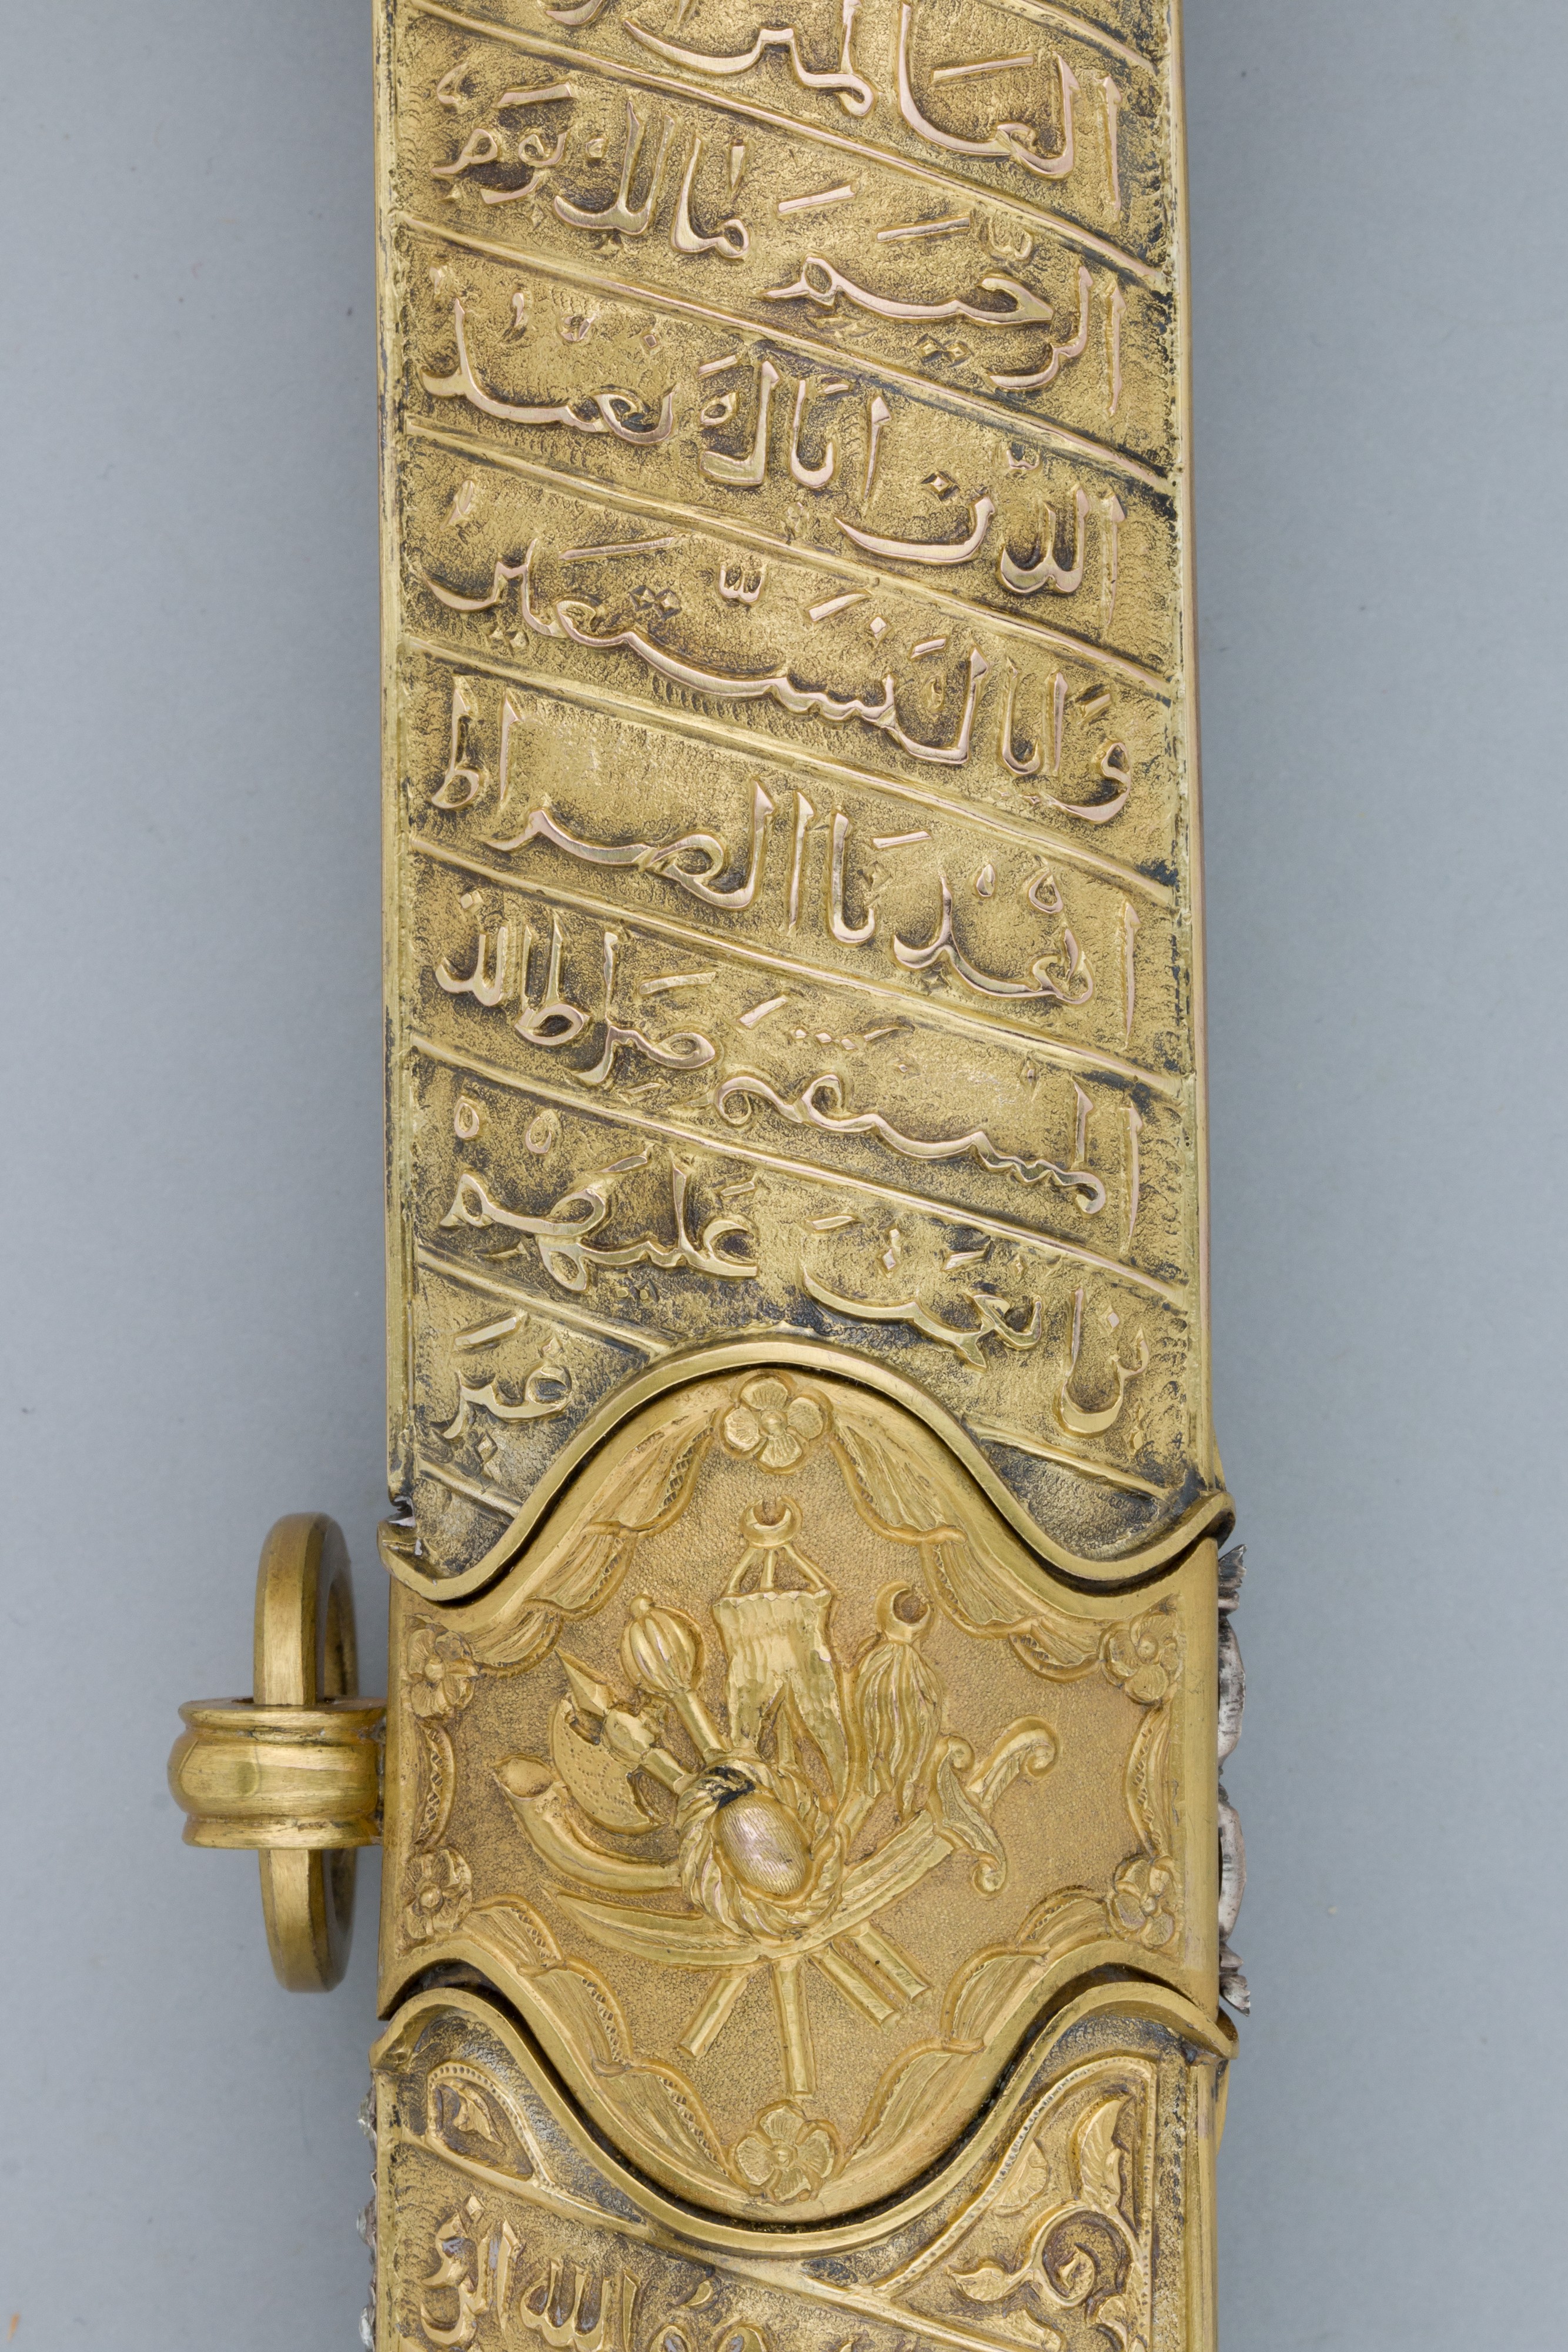 العَالمين
الرّحيمَ مَالك يَومِ
الدّن اياكَ نعْبدُ
وَايا لَنَسّتَعَين
اهْدنَا الصراط
المستقيمَ صَراط الذ
ين انعمتَ عَليهِمْ
غيَر
الله الر